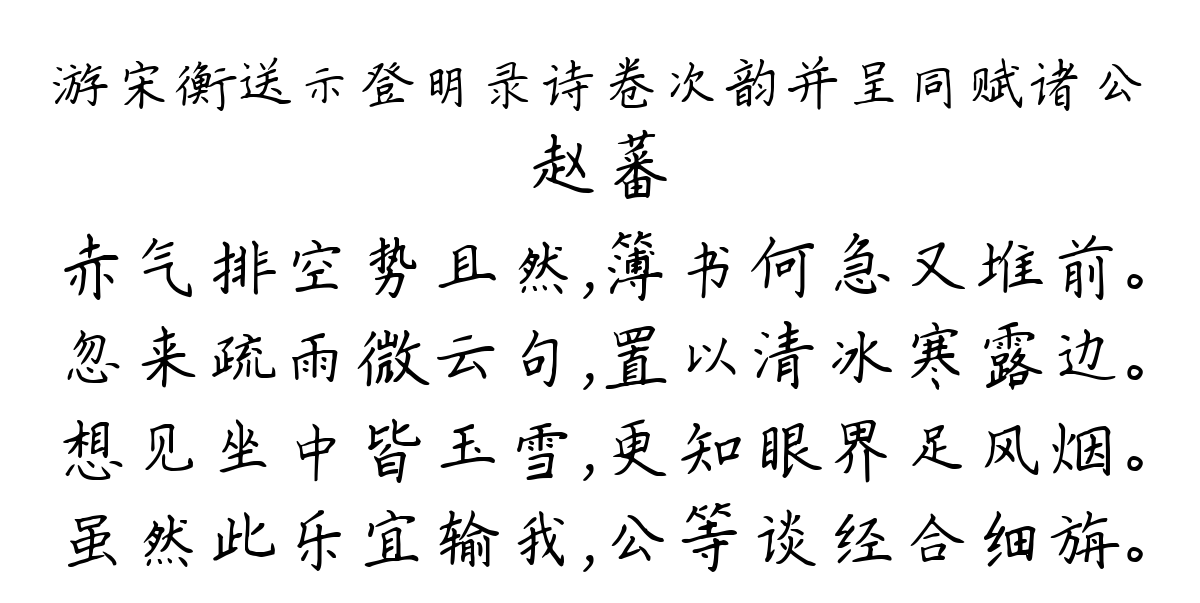 游宋衡送示登明录诗卷次韵并呈同赋诸公
赵蕃
赤气排空势且然,簿书何急又堆前。
忽来疏雨微云句,置以清冰寒露边。
想见坐中皆玉雪,更知眼界足风烟。
虽然此乐宜输我,公等谈经合细旃。